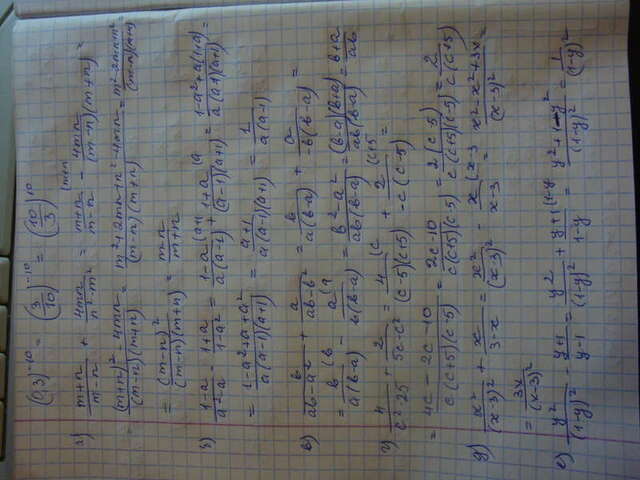 (0,3)^{-10} = (3/10)^{-10} = (10/3)^{10}
а) (m+n)/(m-n) + 4mn/(n²-m²) = (m+n)/(m-n) (m+n - 4mn/((m-n)(m+n)) =
= ((m+n)² - 4mn)/((m-n)(m+n)) = (m²+2mn+n²-4mn)/((m-n)(m+n)) = (m²-2mn+n²)/((m-n)(m+n))
= (m-n)²/((m-n)(m+n)) = (m-n)/(m+n)
б) (1-a)/(a²-a) - (1+a)/(1-a²) = (1-a)/(a(a-1)) (a+1 + (1+a)/((a-1)(a+1)) (a = (1-a²+a(1+a))/(a(a-1)(a+1)) =
= (1-a²+a+a²)/(a(a-1)(a+1)) = (a+1)/(a(a-1)(a+1)) = 1/(a(a-1))
в) b/(ab-a²) + a/(ab-b²) = b/(a(b-a)) + a/(-b(b-a)) =
= b/(a(b-a)) (b - a/(b(b-a)) (a = (b²-a²)/(ab(b-a)) = (b-a)(b+a)/(ab(b-a)) = (b+a)/(ab)
г) 4/(c²-25) + 2/(5c-c²) = 4/((c-5)(c+5)) (c + 2/(-c(c-5)) (c+5 =
= (4c-2c-10)/(c(c+5)(c-5)) = (2c-10)/(c(c+5)(c-5)) = 2(c-5)/(c(c+5)(c-5)) = 2/(c(c+5))
д) x²/(x-3)² + x/(3-x) = x²/(x-3)² - x/(x-3) (x-3 = (x²-x²+3x)/(x-3)² =
= 3x/(x-3)²
е) y²/(1-y)² - (y+1)/(y-1) = y²/(1-y)² + (y+1)/(1-y) (1-y = (y²+1-y²)/(1-y)² = 1/(1-y)²